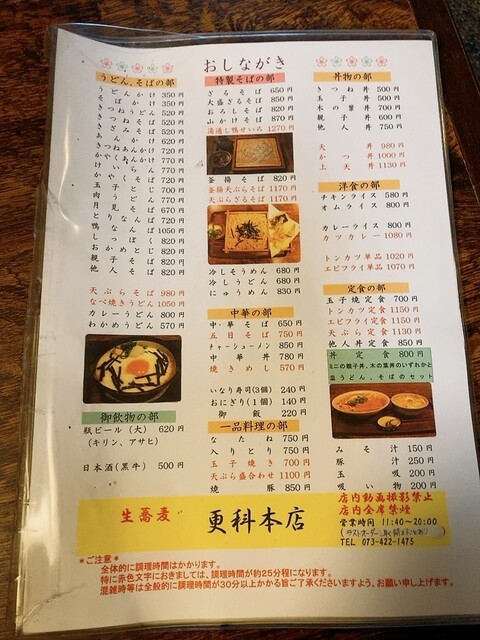 おしながき
うどん、そばの部
うどんかけ 350円
そばかけ 350円
きつねうどん 520円
きつねそば 520円
きざみそば 520円
あんかけ 620円
きつねあんかけ 770円
かやくあんかけ 770円
けいらん
かやくそば
玉子とじ 700円
肉うどん 770円
月見そば 670円
とりなんば 720円
鴨なんば 1050円
しっぽく 820円
おかめとじ 820円
親子そば 820円
他人そば 820円
天ぷらそば 980円
なべ焼きうどん 1050円
カレーうどん 800円
わかめうどん 570円
御飲物の部
瓶ビール(大) 620円
(キリン、アサヒ)
日本酒(黒牛) 500円
特製そばの部
ざるそば 650円
大盛ざるそば 850円
おろしそば 820円
山かけそば 870円
湯通し鴨せいろ 1270円
釜揚そば 820円
釜揚天ぷらそば 1170円
天ぷらざるそば 1170円
冷しそうめん 680円
冷しうどん 680円
にゅうめん 830円
中華の部
中華そば 650円
五目そば 750円
チャーシューメン 850円
中華丼 780円
焼きめし 570円
いなり寿司(3個) 240円
おにぎり(1個) 140円
御飯 220円
一品料理の部
なたね 750円
入りとり 750円
玉子焼き 700円
天ぷら盛合わせ 1100円
焼豚 850円
丼物の部
きつね丼 500円
玉子丼 500円
木の葉丼 700円
親子丼 600円
他人丼 750円
天丼 980円
かつ丼 1000円
上天丼 1130円
洋食の部
チキンライス 580円
オムライス 800円
カレーライス 800円
カツカレー 1080円
トンカツ単品 1020円
エビフライ単品 1070円
定食の部
玉子焼定食 700円
トンカツ定食 1150円
エビフライ定食 1150円
天ぷら定食 1130円
他人丼定食 850円
丼定食 800円
ミニの親子丼、木の葉丼のいずれかと
温うどん、そばのセット
みそ汁 150円
豚汁 250円
玉吸 200円
吸い物 200円
生蕎麦 更科本店
店内動画撮影禁止
店内全席禁煙
営業時間 11:40~20:00
TEL 073-422-1475
*ご注意*
全体的に調理時間はかかります。
特に赤色文字におきましては、調理時間が約25分程になります。
混雑時等は全般的に調理時間が30分以上かかる旨ご了承くださいますよう、お願い申し上げます。